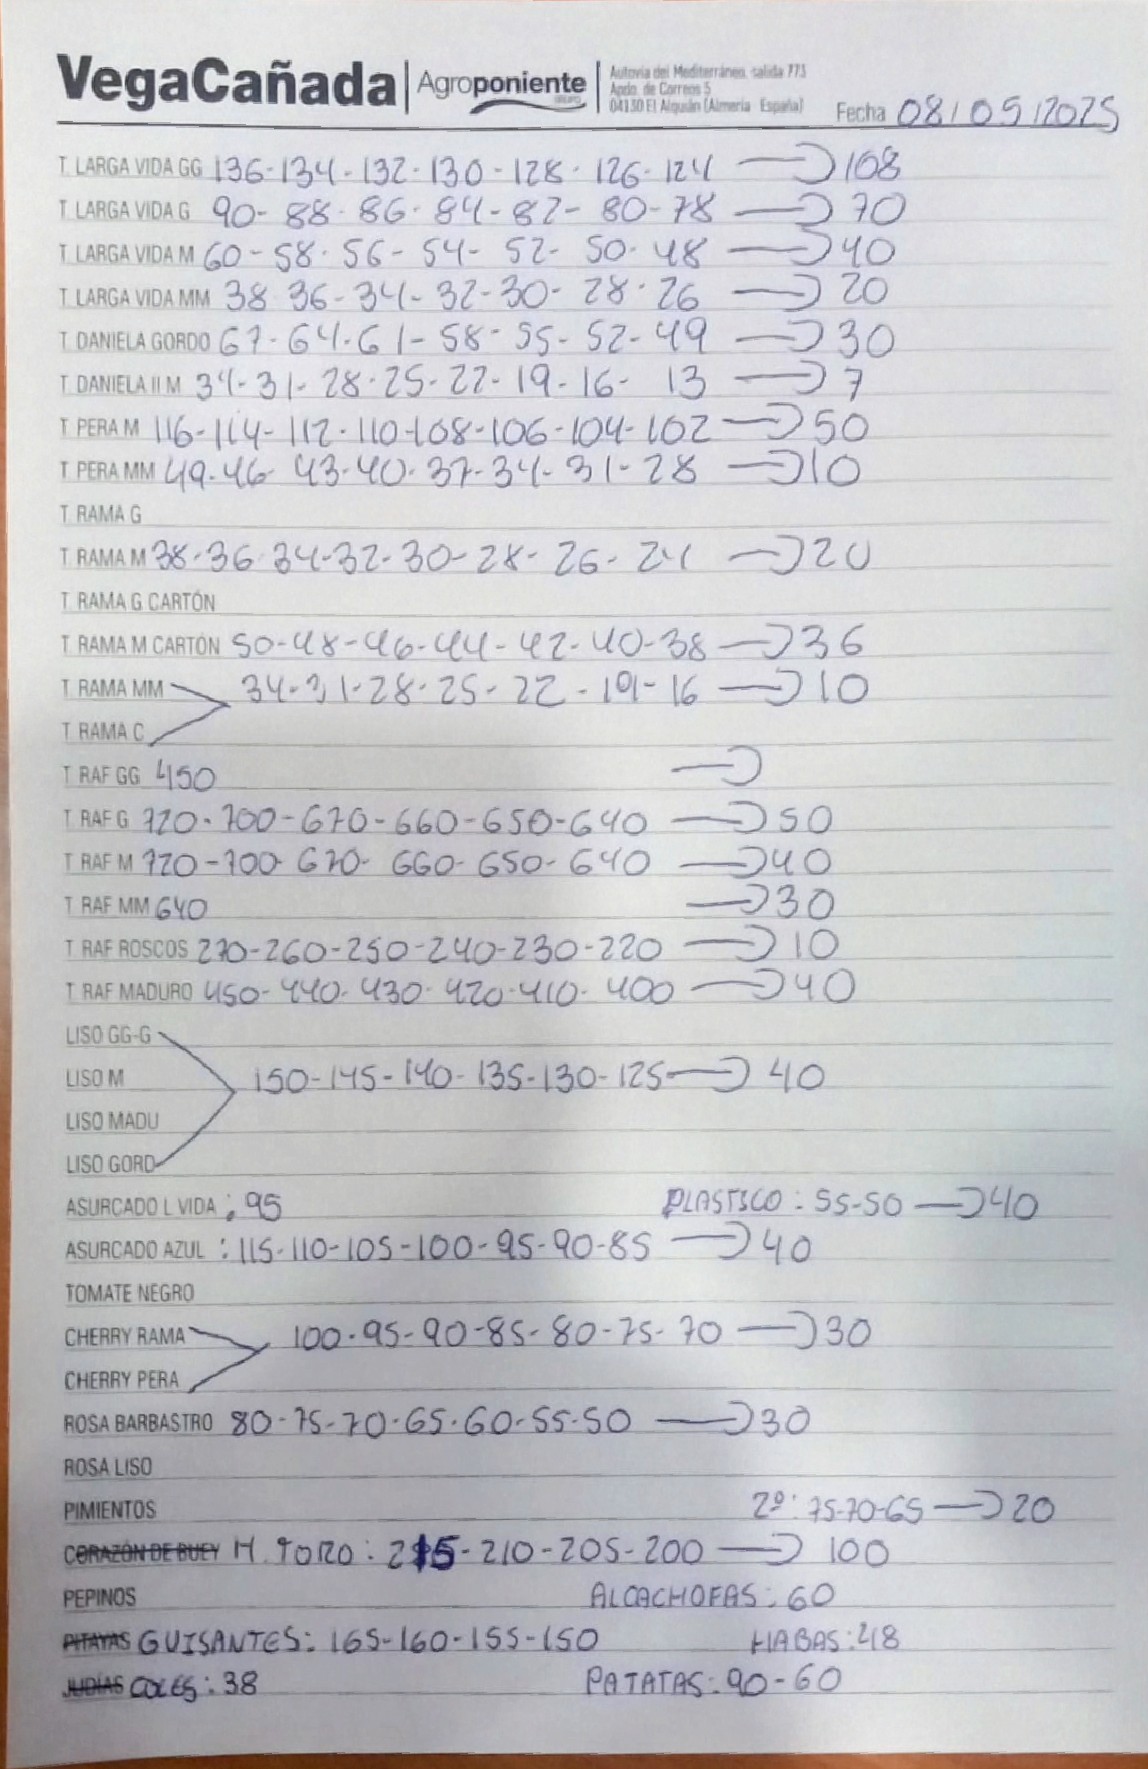 VegaCañada | Agroponiente GRUPO | Autovía del Mediterráneo, salida 773
Apdo. de Correos 5
04130 El Alquián (Almería España)
Fecha 08/05/2025
T. LARGA VIDA GG 136-134-132-130-128-126-124 → 108
T. LARGA VIDA G 90-88-86-84-82-80-78 → 70
T. LARGA VIDA M 60-58-56-54-52-50-48 → 40
T. LARGA VIDA MM 38 36-34-32-30-28-26 → 20
T. DANIELA GORDO 67-64-61-58-55-52-49 → 30
T. DANIELA II M 34-31-28-25-22-19-16-13 → 7
T. PERA M 116-114-112-110-108-106-104-102 → 50
T. PERA MM 49-46-43-40-37-34-31-28 → 10
T. RAMA G
T. RAMA M 38-36-34-32-30-28-26-24 → 20
T. RAMA G CARTÓN
T. RAMA M CARTÓN 50-48-46-44-42-40-38 → 36
T. RAMA MM 34-31-28-25-22-19-16 → 10
T. RAMA C
T. RAF GG 450 →
T. RAF G 720-700-670-660-650-640 → 50
T. RAF M 720-700-670-660-650-640 → 40
T. RAF MM 640 → 30
T. RAF ROSCOS 270-260-250-240-230-220 → 10
T. RAF MADURO 450-440-430-420-410-400 → 40
LISO GG-G
LISO M 150-145-140-135-130-125 → 40
LISO MADU
LISO GORD
ASURCADO L VIDA : 95 PLASTICO : 55-50 → 40
ASURCADO AZUL : 115-110-105-100-95-90-85 → 40
TOMATE NEGRO
CHERRY RAMA 100-95-90-85-80-75-70 → 30
CHERRY PERA
ROSA BARBASTRO 80-75-70-65-60-55-50 → 30
ROSA LISO
PIMIENTOS 2º: 75-70-65 → 20
CORAZÓN DE BUEY H. TORO : 215-210-205-200 → 100
PEPINOS ALCACHOFAS : 60
PITAYAS GUISANTES : 165-160-155-150 HABAS : 48
JUDÍAS COLES : 38 PATATAS : 90-60